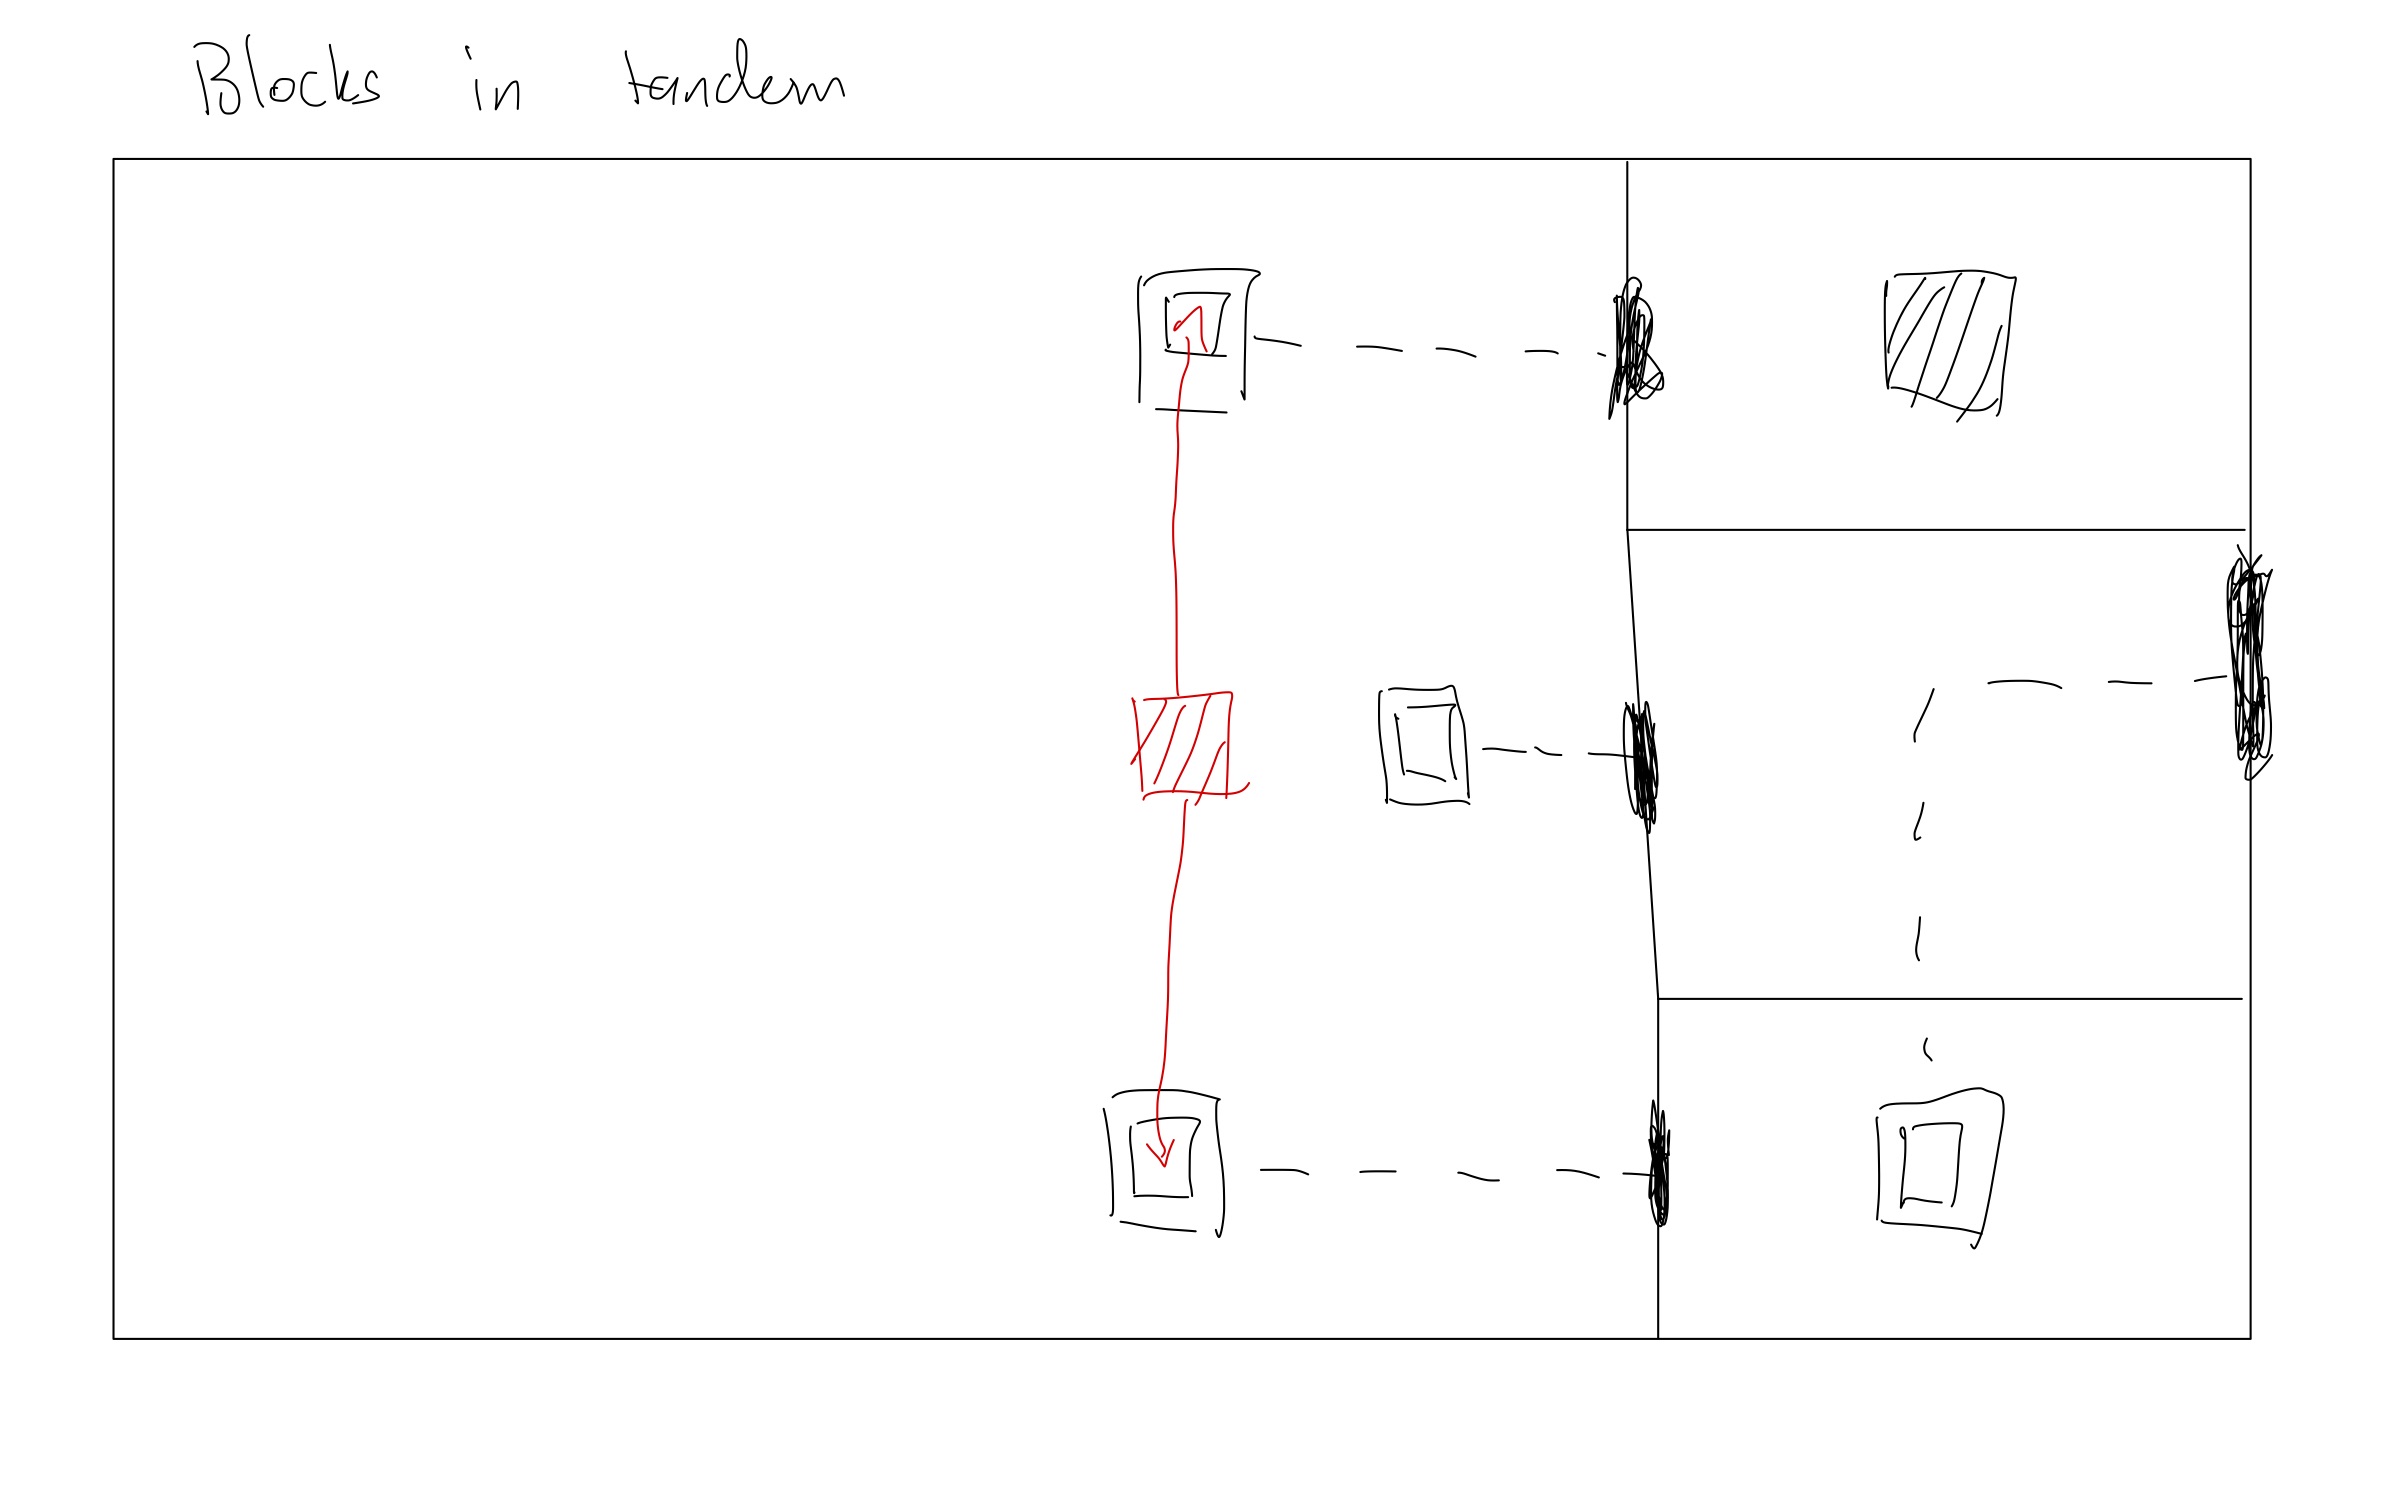 Blocks in tandem